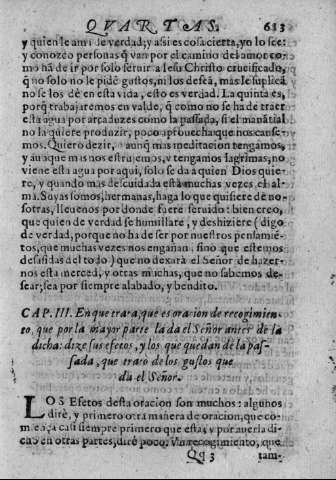 QVARTAS. 613
y quien le ama de verdad; y asi es cosa cierta, yo lo sè:
y conozco personas q̃ van por el camino del amor como
mo hã de ir por solo seruir a Iesu Christo crucificado,
q̃ no solo no le pidẽ gustos, ni los deseã, mas le suplicã
no se los dè en esta vida, esto es verdad. La quinta es,
porq̃ trabajaremos en valde, q̃ como no se ha de traer
esta agua por arcaduzes como la passada, si el manãtial
no la quiere produzir, poco aprouecha que nos canse-
mos. Quiero dezir, aunq̃ mas meditacion tengamos,
y aunque mas nos estrujemos, y tengamos lagrimas, no
viene esta agua por aqui, solo se da a quien Dios quie-
re, y quando mas descuidada està muchas vezes, el al-
ma. Suyas somos, hermanas, haga lo que quisiere de no-
sotras, lleuenos por donde fuere seruido: bien creo,
que quien de verdad se humillare, y deshiziere (digo
de verdad, porque no ha de ser por nuestros pensamiẽ-
tos, que muchas vezes nos engañan, sino que estemos
desasidas del todo) que no dexarà el Señor de hazer-
nos esta merced, y otras muchas, que no sabemos de-
sear; sea por siempre alabado, y bendito.
CAP. III. En que trata, què es oracion de recogimien-
to, que por la mayor parte la da el Señor antes de la
dicha: dize sus efetos, y los que quedan de la pas-
sada, que tratò de los gustos que
da el Señor.
LOS Efetos desta oracion son muchos: algunos
dirè, y primero otra manera de oracion, que co-
miença casi siempre primero que esta; y por auerla di-
cho en otras partes, dirè poco. Vn recogimiento, que
Qq 3 tam-